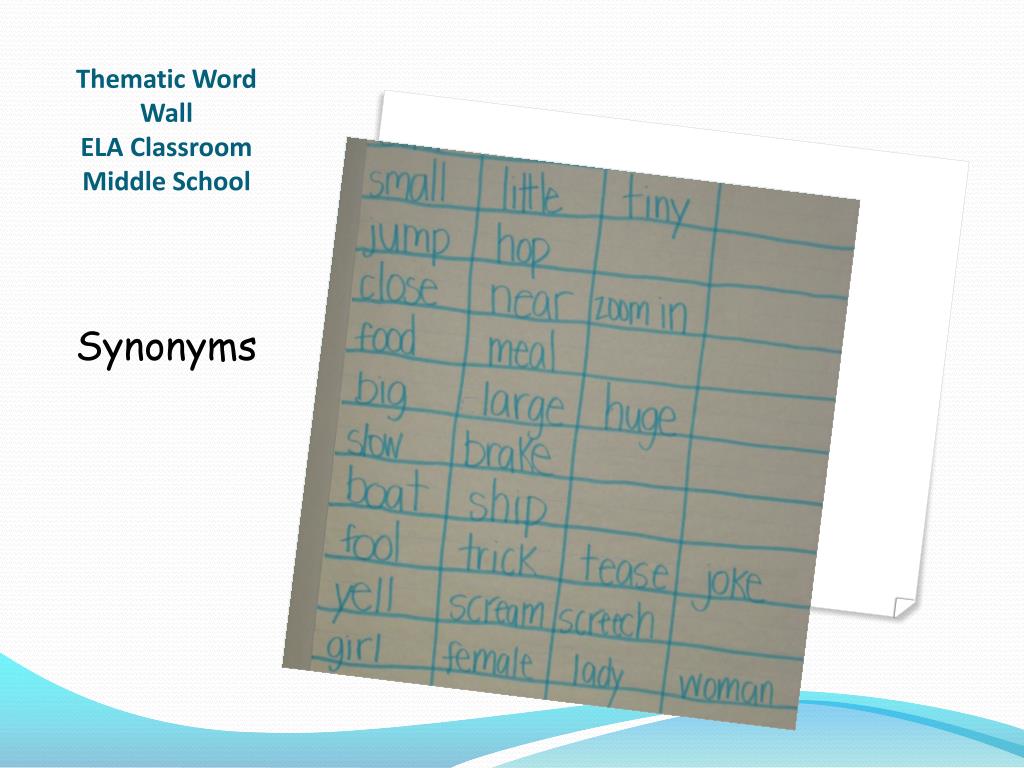 Thematic Word
Wall
ELA Classroom
Middle School
Synonyms
small little tiny
jump hop
close near zoom in
food meal
big large huge
slow brake
boat ship
fool trick tease joke
yell scream screech
girl female lady woman